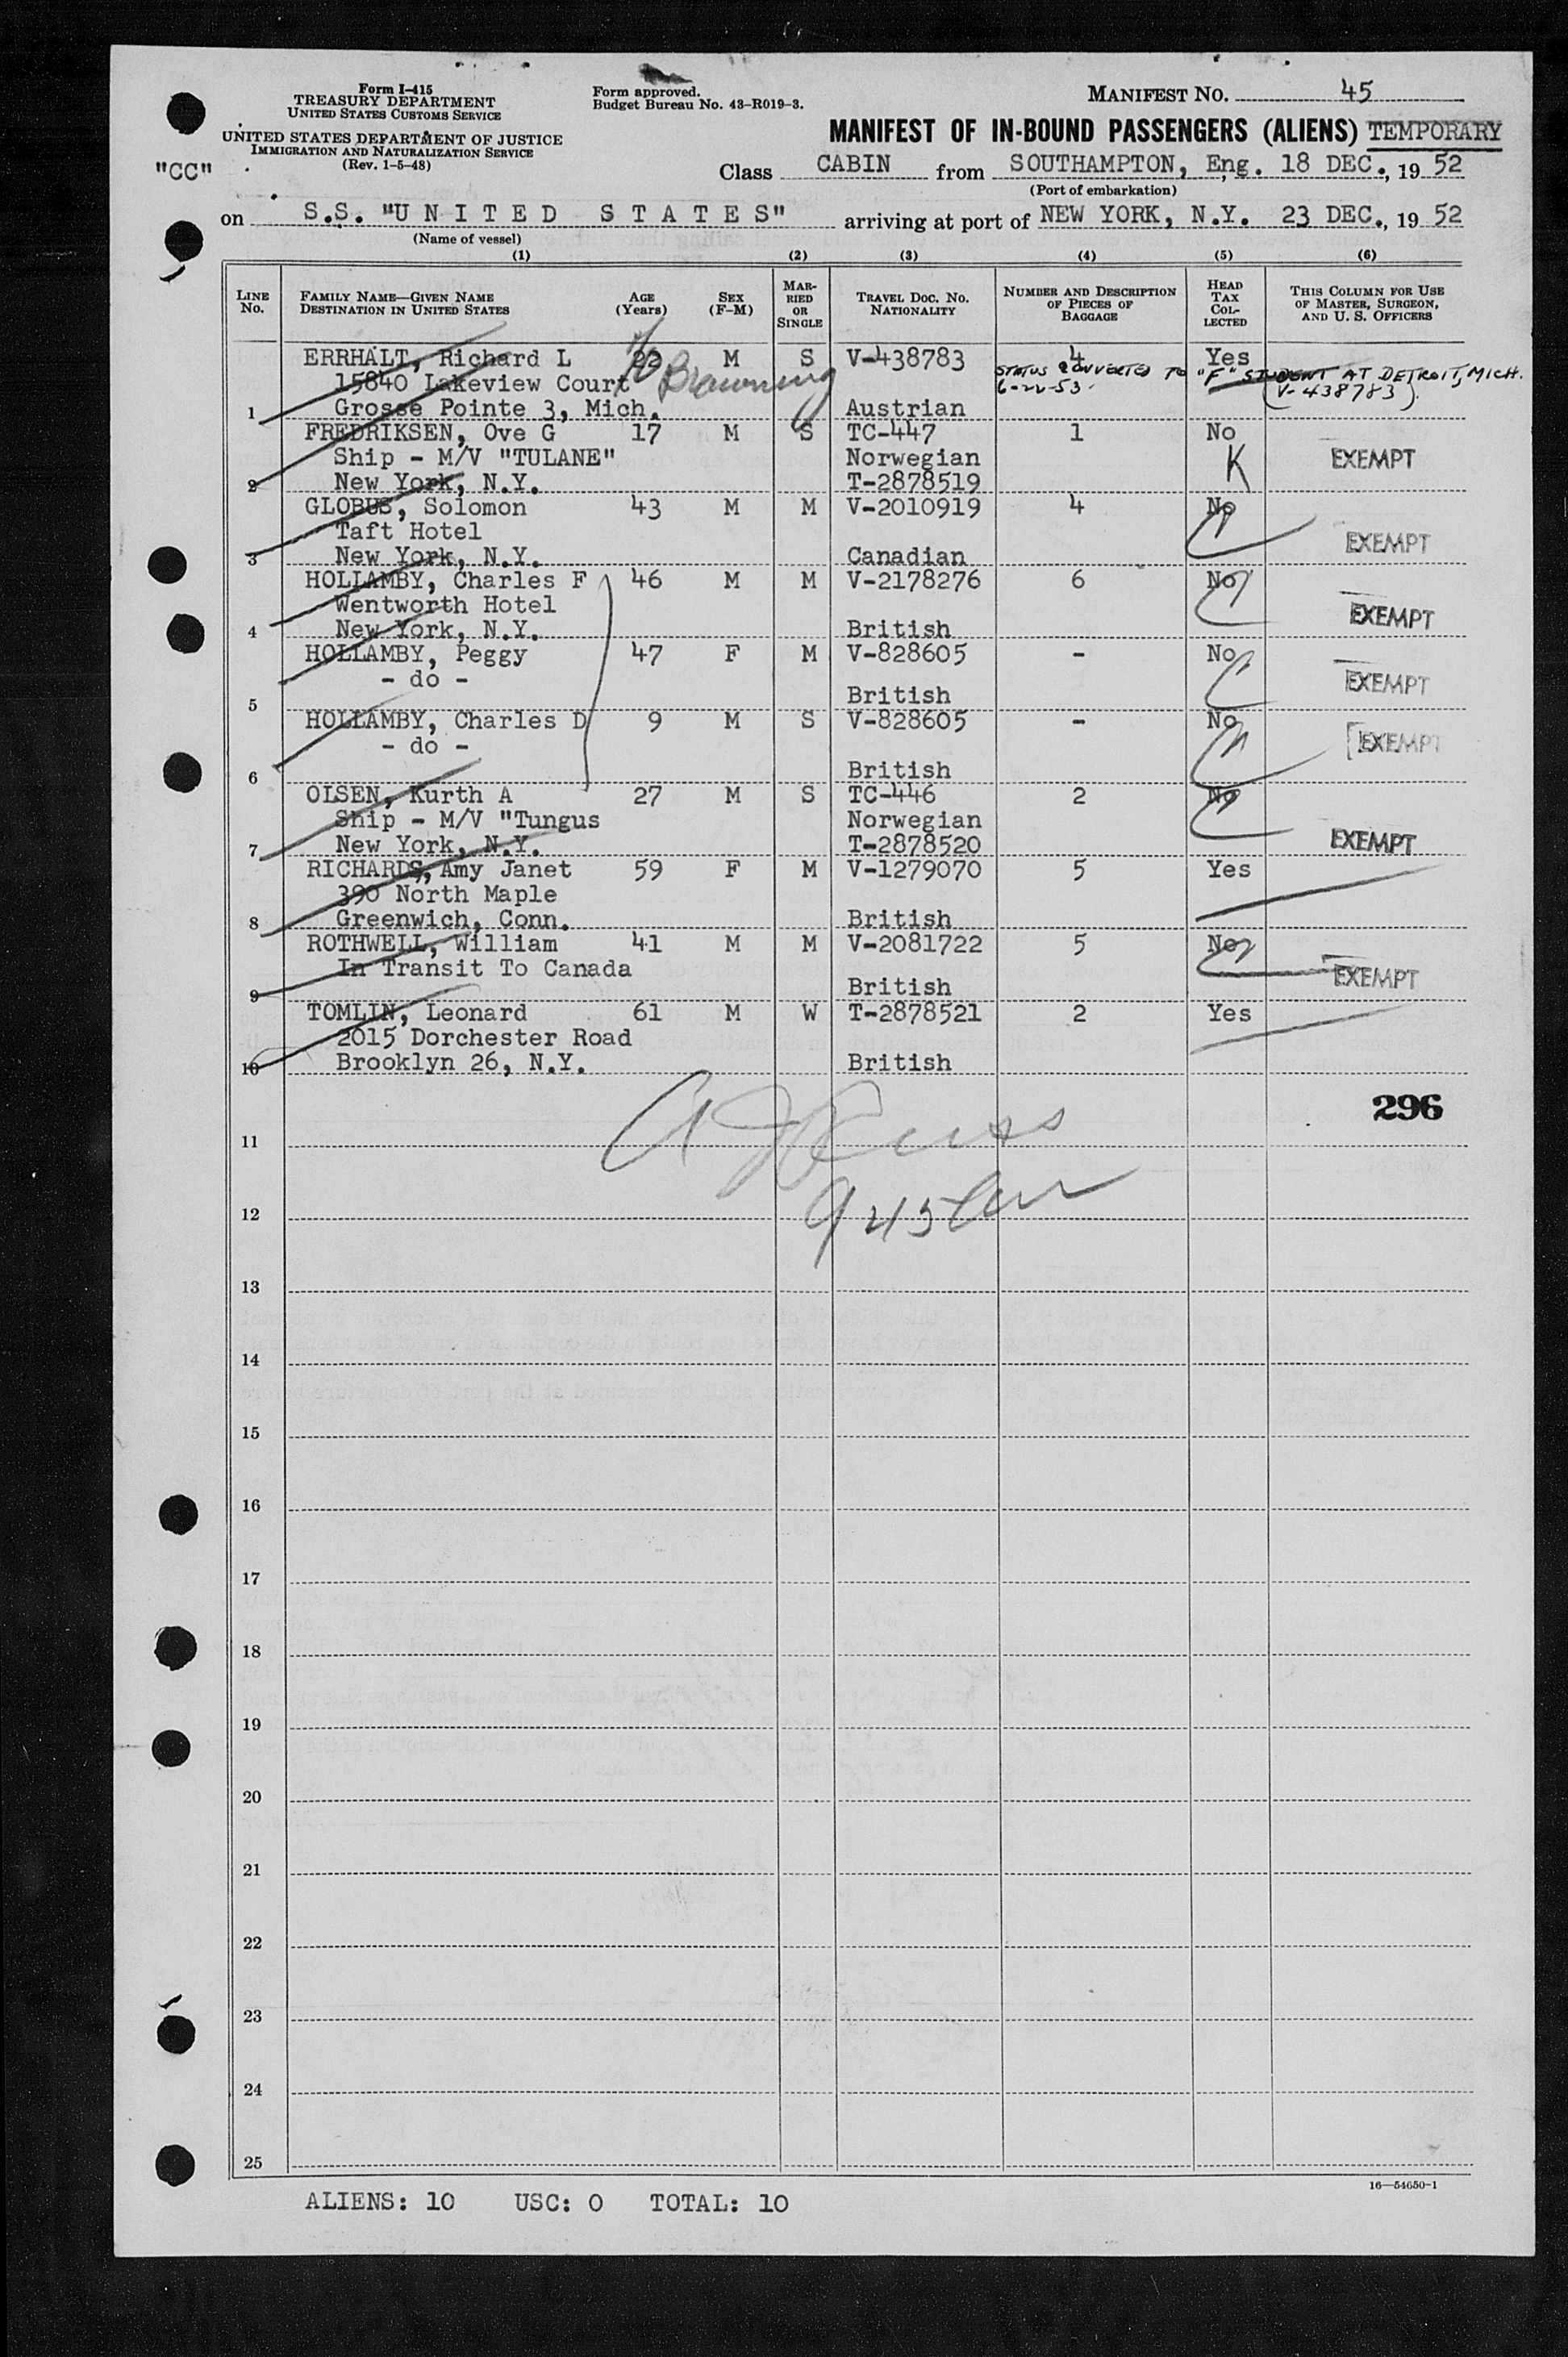 Form I-415
TREASURY DEPARTMENT
UNITED STATES CUSTOMS SERVICE
UNITED STATES DEPARTMENT OF JUSTICE
IMMIGRATION AND NATURALIZATION SERVICE
(Rev. 1-5-48)
"CC"
Form approved.
Budget Bureau No. 43-R019-3.
MANIFEST NO. 45
MANIFEST OF IN-BOUND PASSENGERS (ALIENS) TEMPORARY
Class CABIN from SOUTHAMPTON, Eng. 18 DEC., 19 52
(Port of embarkation)
on S.S. "U N I T E D S T A T E S" arriving at port of NEW YORK, N.Y. 23 DEC., 19 52
(Name of vessel)
(1) (2) (3) (4) (5) (6)
LINE NO. FAMILY NAME—GIVEN NAME DESTINATION IN UNITED STATES AGE (Years) SEX (F-M) MARRIED OR SINGLE TRAVEL DOC. NO. NATIONALITY NUMBER AND DESCRIPTION OF PIECES OF BAGGAGE HEAD TAX COLLECTED THIS COLUMN FOR USE OF MASTER, SURGEON, AND U. S. OFFICERS
ERRHALT, Richard L M S V-438783 4 Yes
15840 Lakeview Court Browning STATUS CONVERTED TO "F" STUDENT AT DETROIT, MICH.
6-22-53. (V-438783).
1 Grosse Pointe 3, Mich. Austrian
FREDRIKSEN, Ove G 17 M S TC-447 1 No
Ship - M/V "TULANE" Norwegian K EXEMPT
2 New York, N.Y. T-2878519
GLOBUS, Solomon 43 M M V-2010919 4 No
Taft Hotel EXEMPT
3 New York, N.Y. Canadian
HOLLAMBY, Charles F 46 M M V-2178276 6 No
Wentworth Hotel EXEMPT
4 New York, N.Y. British
HOLLAMBY, Peggy 47 F M V-828605 - No
- do - EXEMPT
5 British
HOLLAMBY, Charles D 9 M S V-828605 - No
- do - EXEMPT
6 British
OLSEN, Kurth A 27 M S TC-446 2 No
Ship - M/V "Tungus Norwegian
7 New York, N.Y. T-2878520 EXEMPT
RICHARDS, Amy Janet 59 F M V-1279070 5 Yes
390 North Maple
8 Greenwich, Conn. British
ROTHWELL, William 41 M M V-2081722 5 No
In Transit To Canada EXEMPT
9 British
TOMLIN, Leonard 61 M W T-2878521 2 Yes
2015 Dorchester Road
10 Brooklyn 26, N.Y. British
296
11
12 945
13
14
15
16
17
18
19
20
21
22
23
24
25
16—54650-1
ALIENS: 10 USC: 0 TOTAL: 10